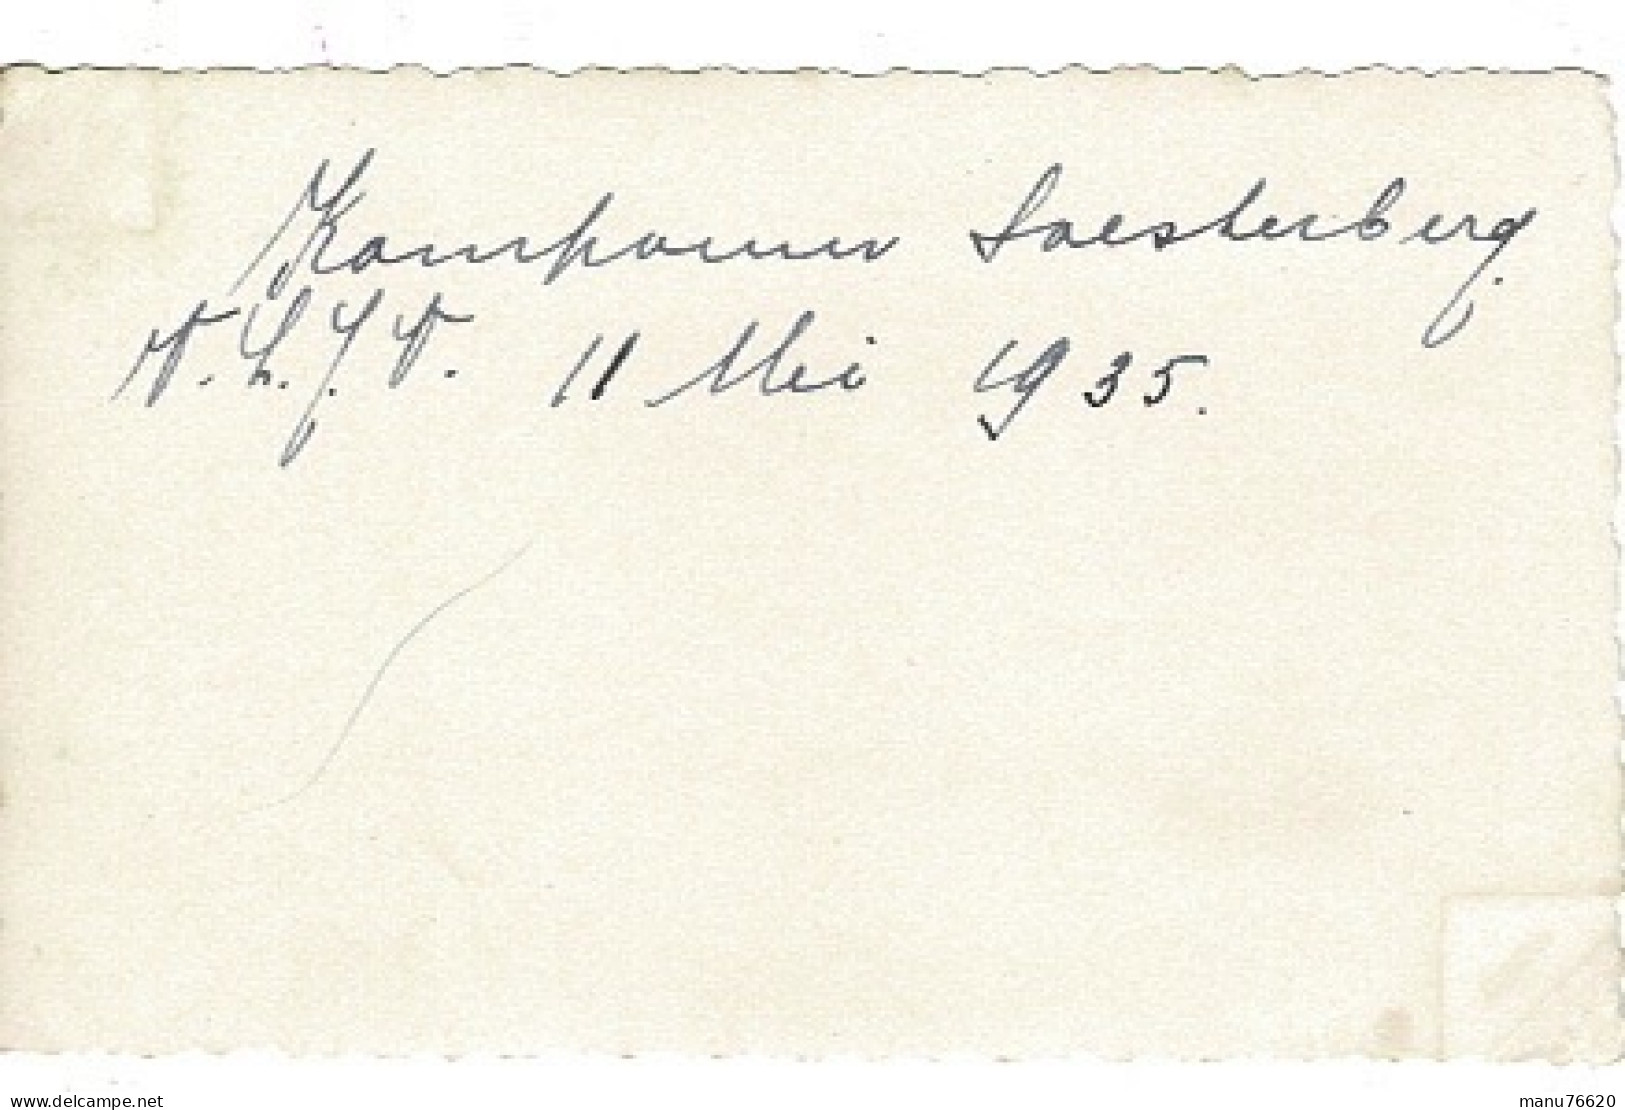 Kamphouwer Soesterberg.
V.L.J.V. 11 Mei 1935.
www.delcampe.net
manu76620